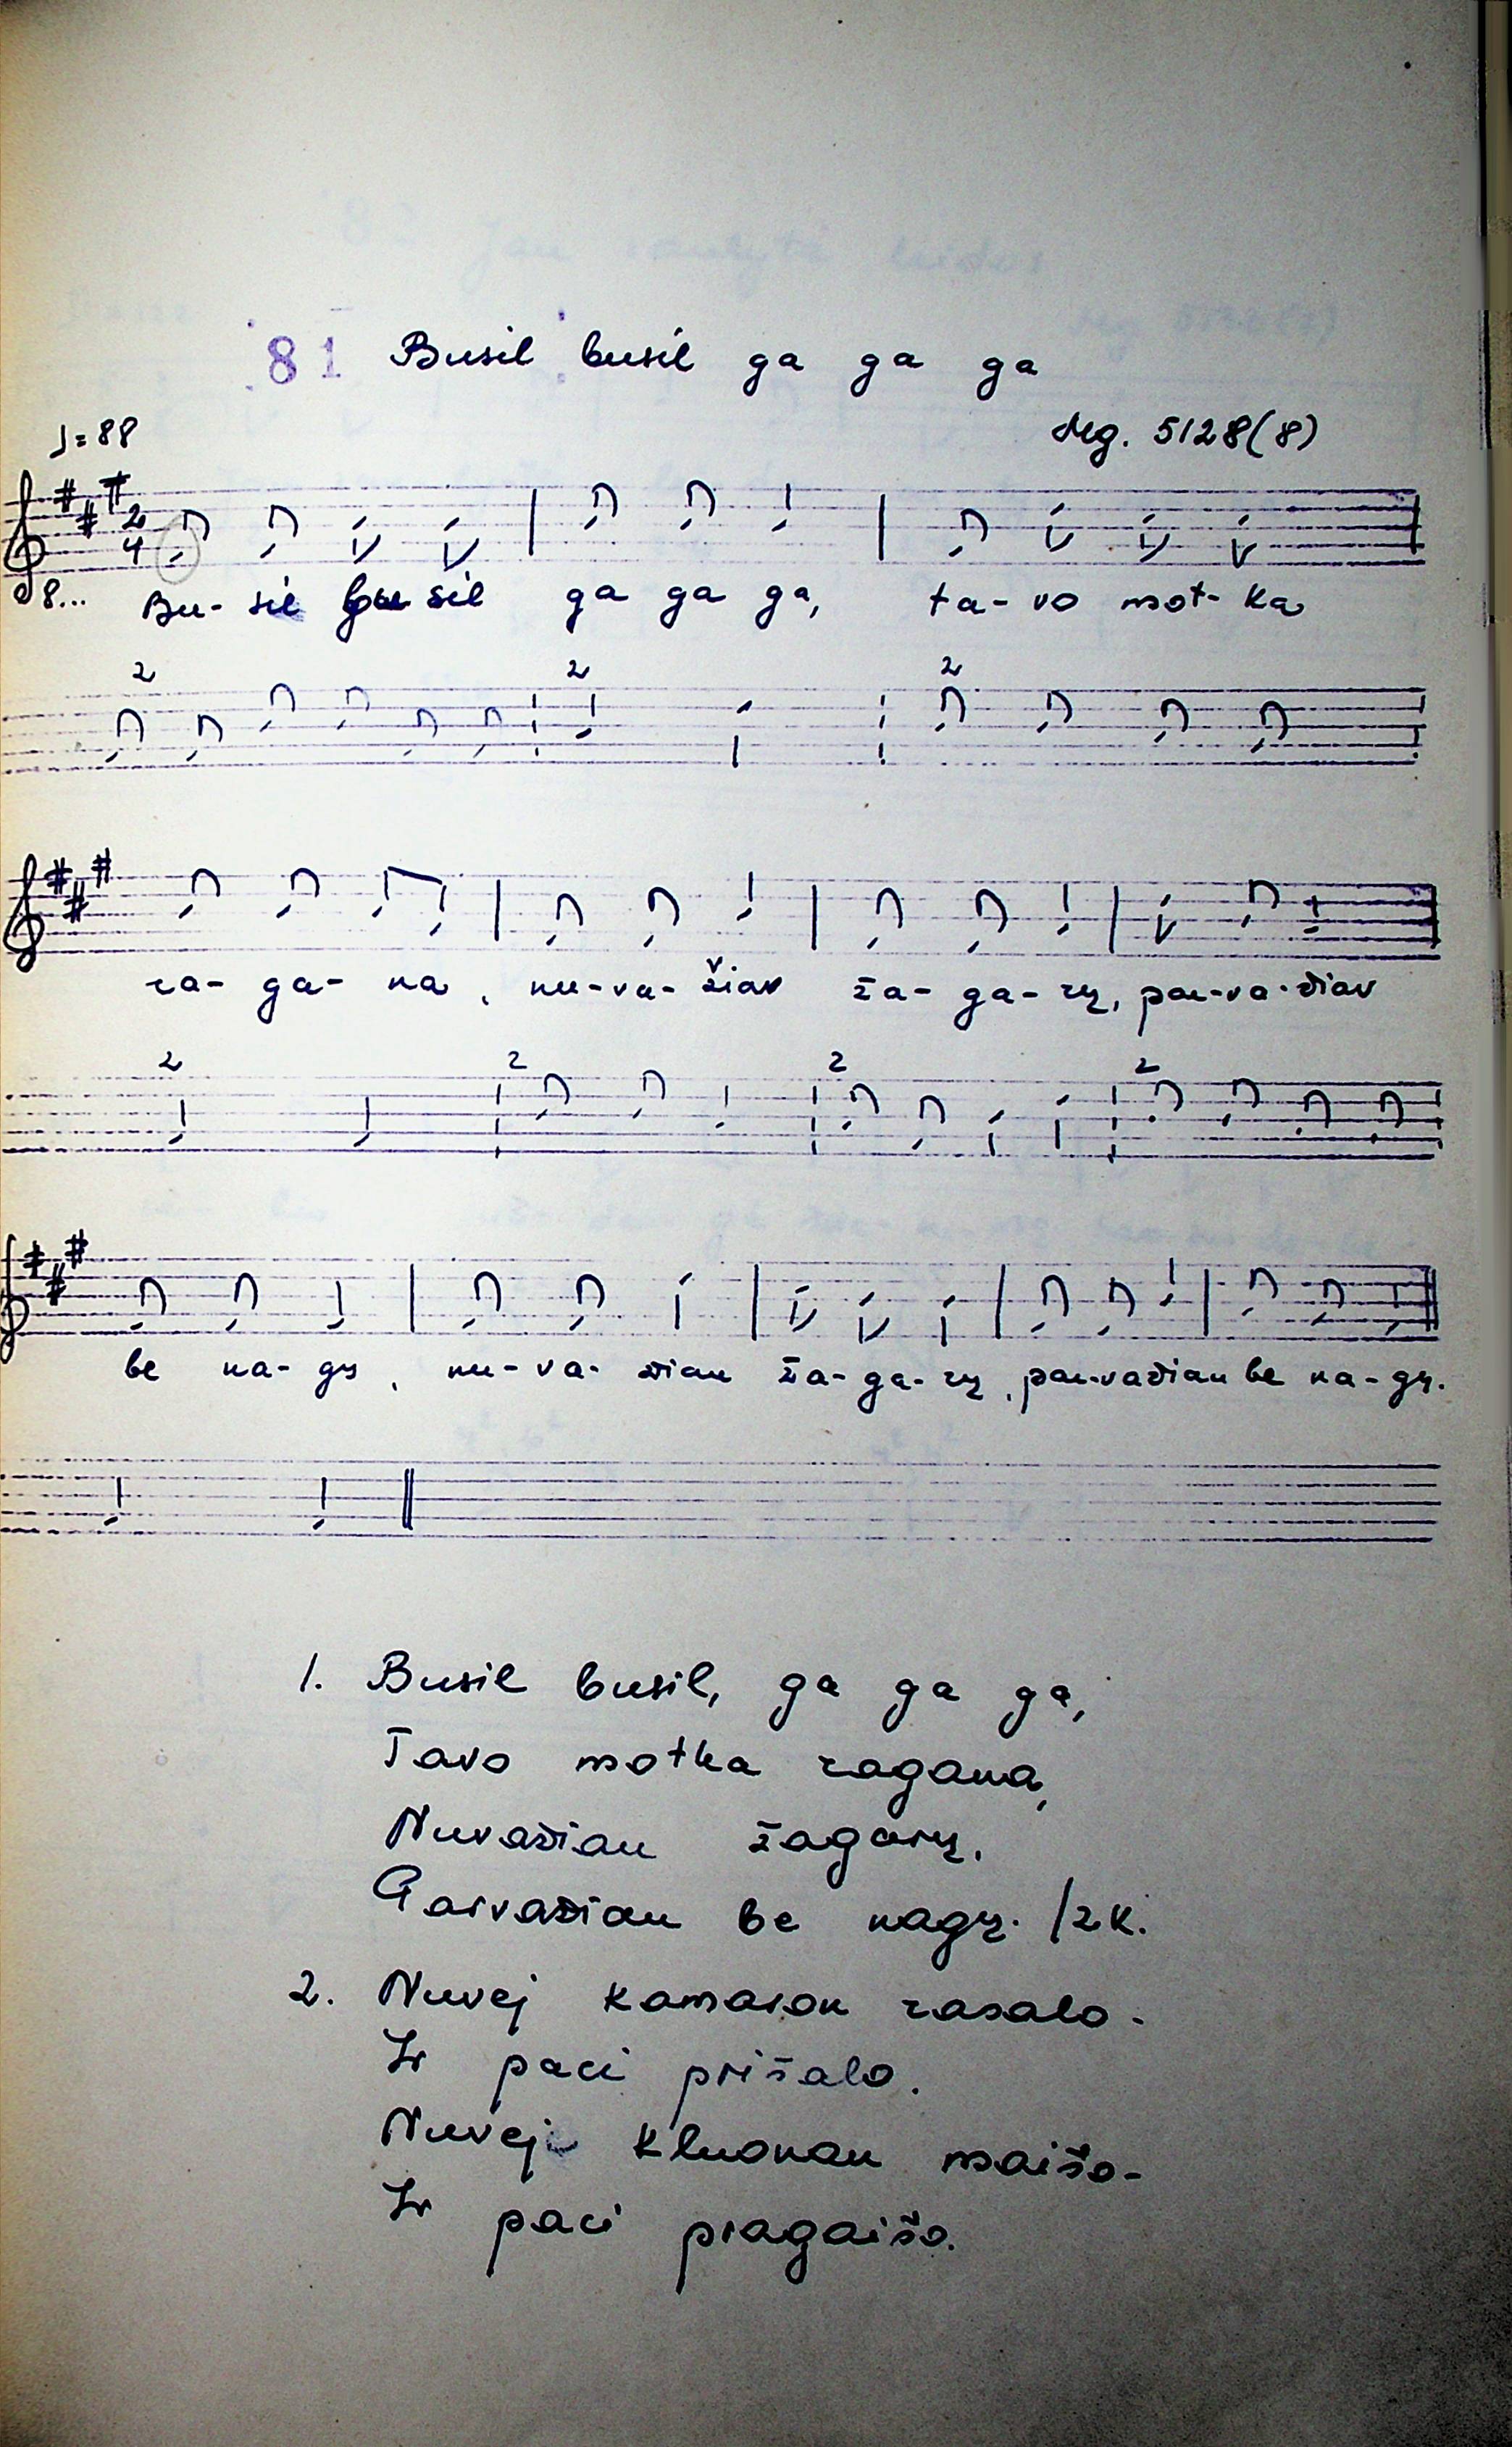 81 Busil busil ga ga ga
♩=88
Mg. 5128(8)
2
4
8...
Bu- sil bu sil ga ga ga, ta- vo mot- ka
2 2 2
ra- ga- na, nu-va- žiav ža- ga- rų, par-va-žiav
2 2 2 2
be na- gų, nu- va- žiau ža- ga- rų, par-važiau be na- gų.
1. Busil busil, ga ga ga,
Tavo motka ragana,
Nuvažiau žagarų,
Parvažiau be nagų. /2k.
2. Nuvej kamaron rasalo-
Ir paci prišalo.
Nuvej kluonan maišo-
Ir paci pragaišo.